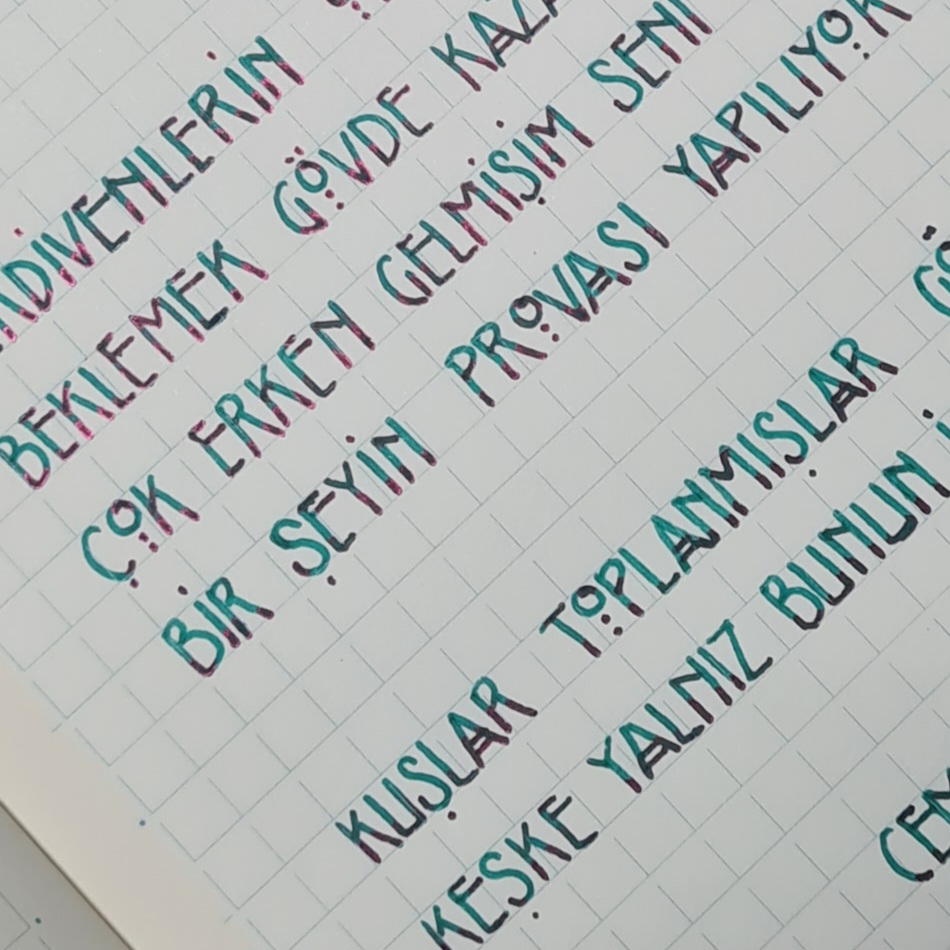 RDİVENLERİN
BEKLEMEK GÖVDE KAZA
ÇOK ERKEN GELMİŞİM SENİ
BİR ŞEYİN PROVASI YAPILIYOR
KUŞLAR TOPLANMIŞLAR GÖ
KEŞKE YALNIZ BUNUN
CEM